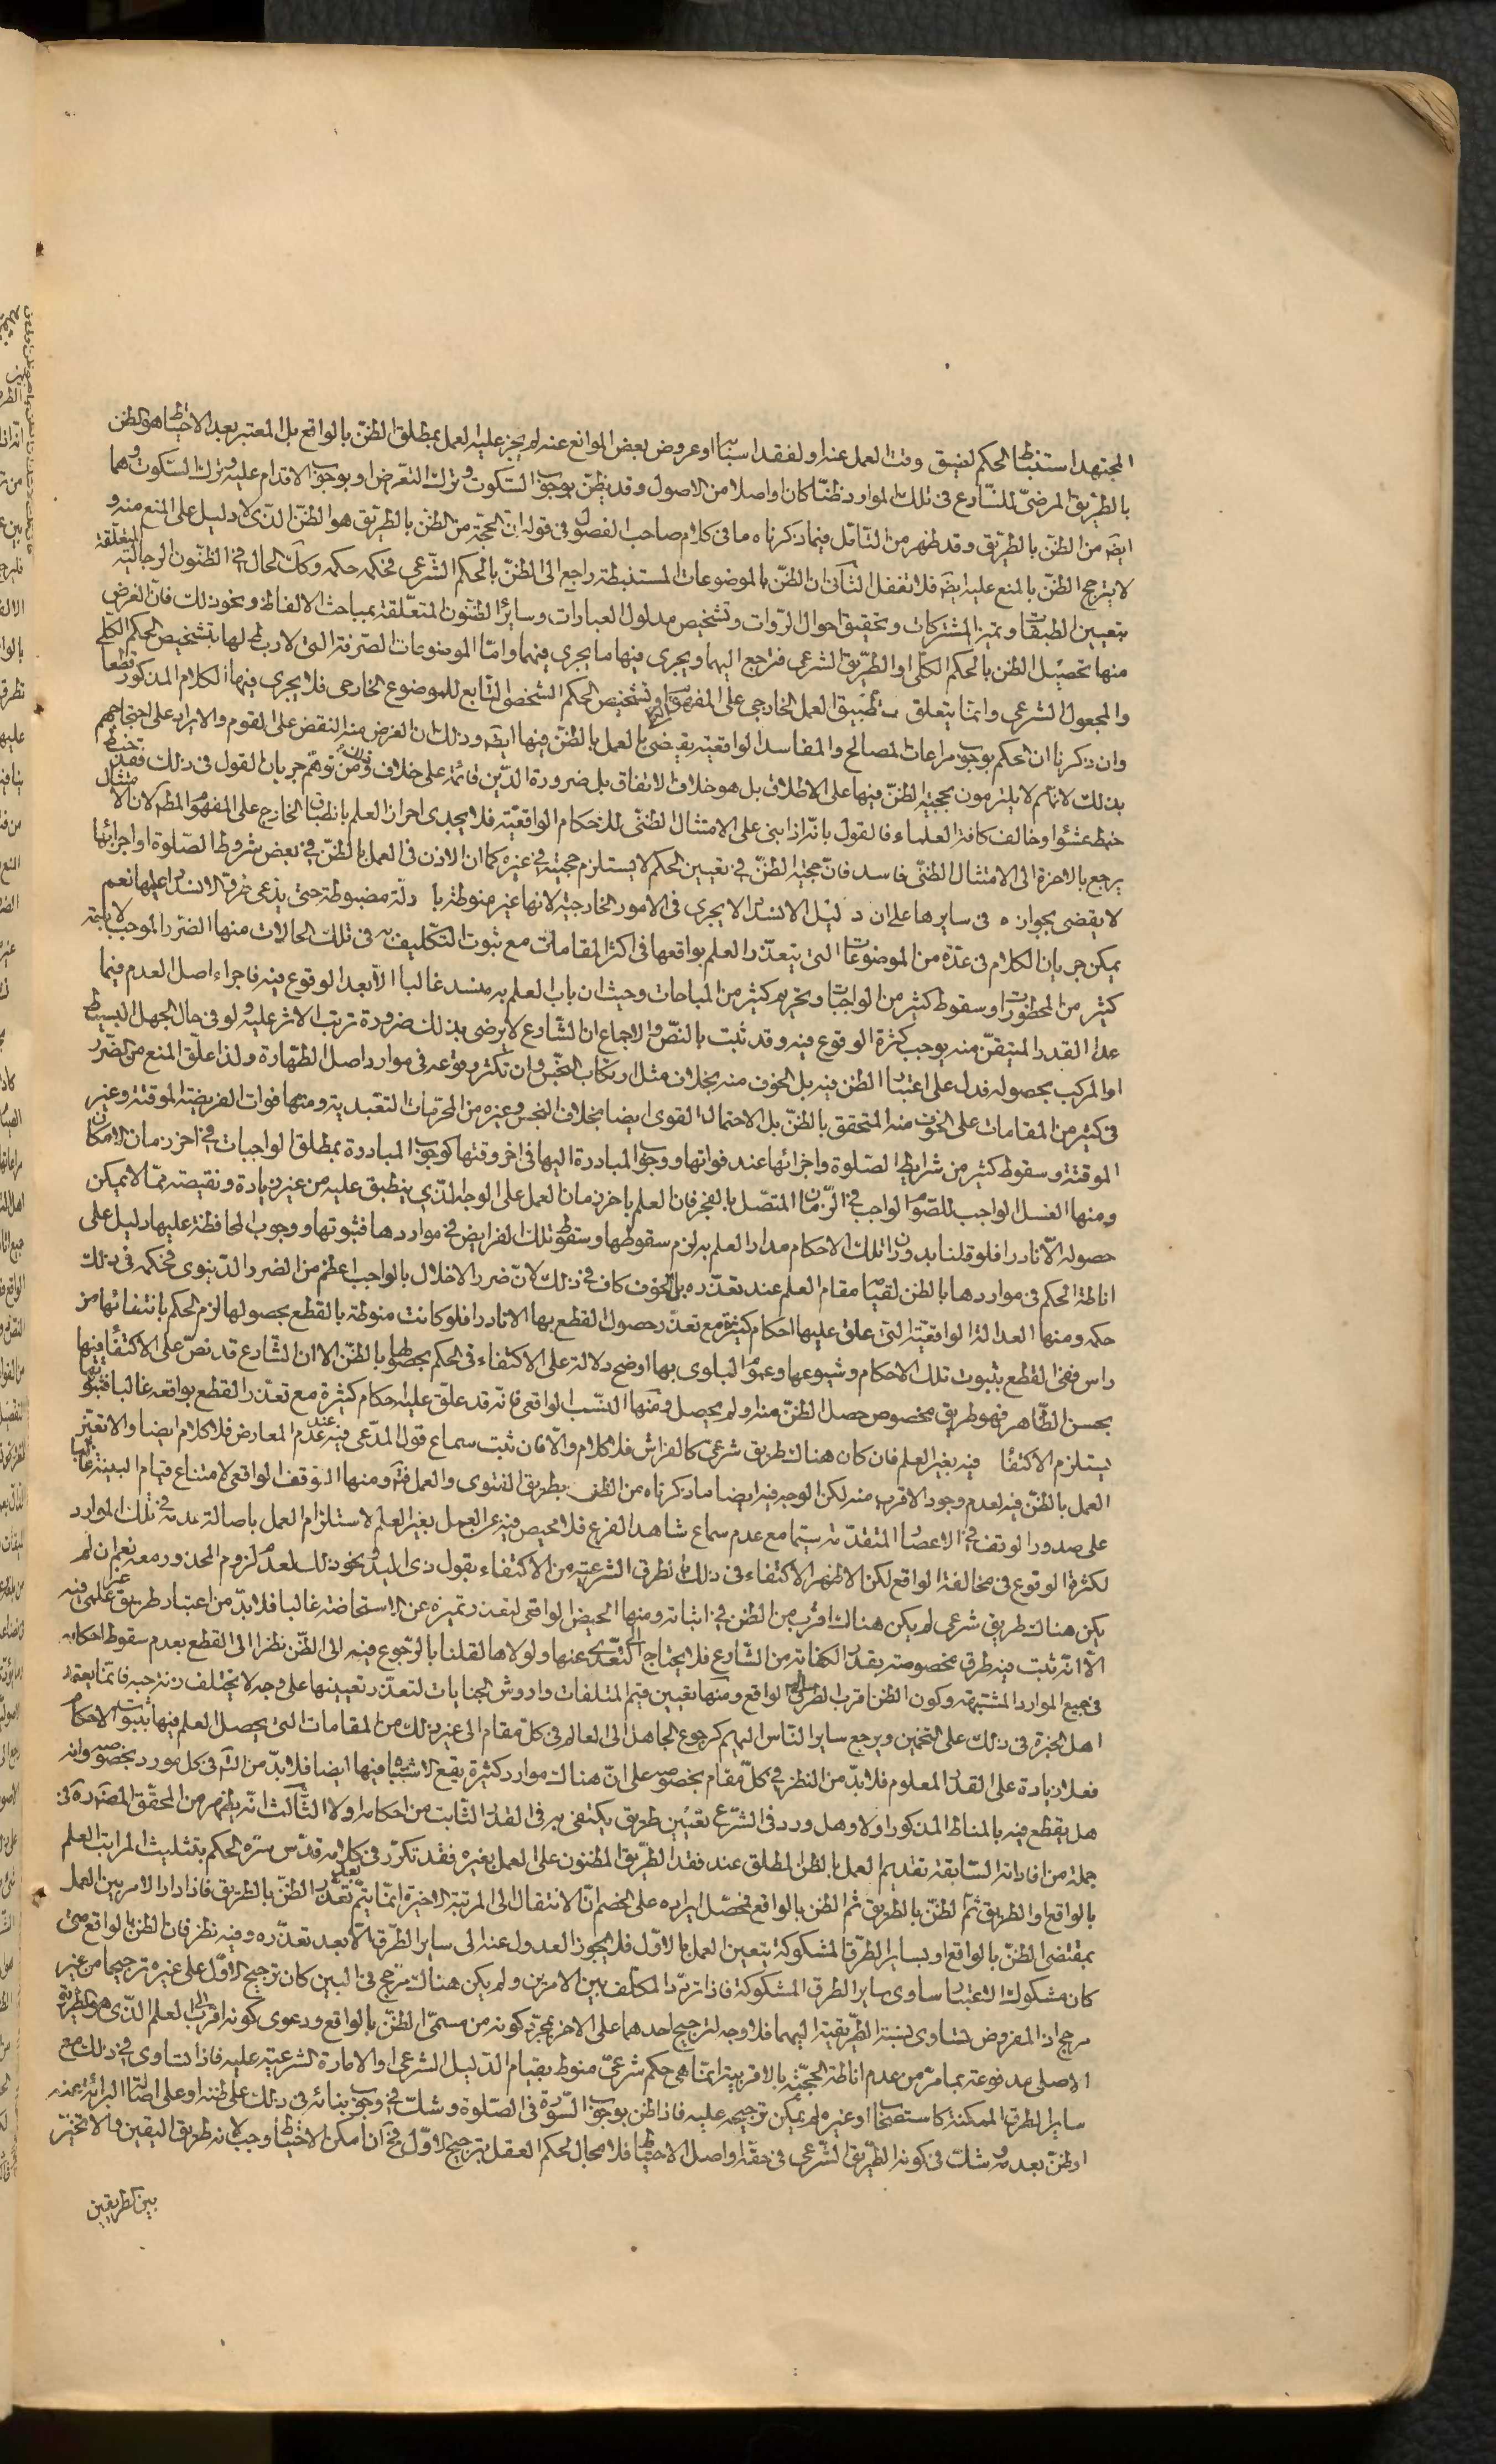 المجتهد استنباط الحكم لضيق وقت العمل عنه او لفقد اسبابه او عروض بعض الموانع عنه لم يجز عليه العمل بمطلق الظنّ بالواقع بل المعتبر بعد الاحتياط هو الظن
بالطريق المرضىّ للشارع فى تلك الموارد ظنّا كان او اصلا من الاصول وقد يظنّ بوجوب السكوت وترك التعرّض او بوجوب الاقدام عليه وترك السكوت وهما
ايضَ من الظنّ بالطريق وقد ظهر من التامّل فيما ذكرناه ما فى كلام صاحب الفصول فى قوله انّ الحجّة من الظنّ بالطريق هو الظنّ الذى لا دليل على المنع منه و
لا يترجح الظنّ بالمنع عليه ايضَ فلا تغفل الثانى ان الظنّ بالموضوعات المستنبطة راجع الى الظنّ بالحكم الشّرعى فحكمه حكمه وكك الحال فى الظنون الرجالية المتعلقة
بتعيين الطبقات وتميز المشتركات وتحقيق احوال الروات وتشخيص مدلول العبارات وساير الظنون المتعلقة بمباحث الالفاظ ونحو ذلك فانّ الغرض
منها تحصيل الظن بالحكم الكلّى او الطّريق الشرعى فترجع اليهما ويجرى فيها ما يجرى فيهما وامّا الموضوعات الصّرفة التى لا ربط لها بتشخيص الحكم الكلّى
والمجعول الشرعى وانّما يتعلق بتطبيق العمل الخارجى على المفهوم وتشخيص الحكم الشخصى التابع للموضوع الخارجى فلا يجرى فيها الكلام المذكور قطعا
وان ذكرنا ان الحكم بوجوب مراعات المصالح والمفاسد الواقعية يقتضى العمل بالظنّ فيها ايضَ وذلك ان الغرض منه النقض على القوم والايراد على احتجاجهم
بذلك لانّهم لا يلتزمون بحجية الظنّ فيها على الاطلاق بل هو خلاف الاتفاق بل ضرورة الدّين قائمة على خلافه فمن توهّم جريان القول فى ذلك فقد خبط
خبط عشواء وخالف كافة العلماء فالقول بانّه اذا بنى على الامتثال الظنّى للاحكام الواقعيّة فلا يجدى احراز العلم بانطباق الخارج على المفهوم المظ لان الامتثال
يرجع بالاخرة الى الامتثال الظنّى فاسد فانّ حجيّة الظنّ فى تعيين الحكم لا يستلزم حجيته فى غيره كما ان الاذن فى العمل بالظنّ فى بعض شروط الصّلوة او اجزائها
لا يقضى بجوازه فى سايرها على ان دليل الانسداد لا يجرى فى الامور الخارجيّة لانها غير منوطة بادلّة مضبوطة حتى يدّعى طروّ الانسداد عليها نعم
يمكن جريان الكلام فى عدّة من الموضوعات التى يتعذّر العلم بواقعها فى اكثر المقامات مع ثبوت التكليف به فى تلك الحالات منها الضرر الموجب لاباحة
كثير من المحظورات وسقوط كثير من الواجبات وتحريم كثير من المباحات وحيث ان باب العلم به منسد غالبا الّا بعد الوقوع فيه فاجراء اصل العدم فيما
عدا القدر المتيقّن منه يوجب كثرة الوقوع فيه وقد ثبت بالنصّ والاجماع ان الشارع لا يرضى بذلك ضرورة ترتب الاثر عليه ولو فى حال الجهل البسيط
او المركب بحصوله فدل على اعتبار الظن فيه بل الخوف منه بخلاف مثل ارتكاب النجس وان تكثر وقوعه فى موارد اصل الطّهارة ولذا علق المنع من الضرر
فى كثير من المقامات على الخوف منه المتحقق بالظنّ بل الاحتمال القوى ايضا بخلاف النجس وغيره من المحرّمات التعبدية ومنها فوات الفريضة الموقتة وغير
الموقتة وسقوط كثير من شرايط الصّلوة واجزائها عند فواتها ووجوب المبادرة اليها فى اخر وقتها كوجوب المبادرة بمطلق الواجبات فى اخر زمان الامكان
ومنها الغسل الواجب للصّوم الواجب فى الزّمان المتصّل بالفجر فان العلم باخر زمان العمل على الوجه الذّى ينطبق عليه من غير زيادة ونقيصة ممّا لا يمكن
حصوله الّا نادرا فلو قلنا بدوران تلك الاحكام مدار العلم به لزم سقوطها وسقوط تلك الفرايض فى مواردها فثبوتها ووجوب المحافظة عليها دليل على
اناطة الحكم فى مواردها بالظن لقيامه مقام العلم عند تعذّره بل الخوف كاف فى ذلك لانّ ضرر الاخلال بالواجب اعظم من الضرر الدّنيوى فحكمه فى ذلك
حكمه ومنها العدالة الواقعيّة التى علق عليها احكام كثيرة مع تعذّر حصول القطع بها الا نادرا فلو كانت منوطة بالقطع بحصولها لزم الحكم بانتفائها من
راس ففى القطع بثبوت تلك الاحكام وشيوعها وعموم البلوى بها اوضح دلالة على الاكتفاء فى الحكم بحصولها بالظنّ الا ان الشارع قد نصّ على الاكتفاء فيها
بحسن الظّاهر فهو طريق مخصوص حصل الظنّ منه او لم يحصل ومنها النسب الواقعى فانّه قد علّق عليه احكام كثيرة مع تعذّر القطع بواقعه غالبا فثبوتها
يستلزم الاكتفاء فيه بغير العلم فان كان هناك طريق شرعى كالفراش فلا كلام والّا فان ثبت سماع قول المدّعى فيه عند عدم المعارض فلا كلام ايضا والا تعيّن
العمل بالظنّ فيه لعدم وجود الاقرب منه لكن الوجه فيه ايضا ما ذكرناه من الظن بطريق الفتوى والعمل فت ومنها الوقف الواقعى لامتناع قيام البينة غالبا
على صدور الوقف فى الاعصار المتقدّمة سيّما مع عدم سماع شاهد الفرع فلا محيص فيه عن العمل بغير العلم لاستلزام العمل باصالة عدمه فى تلك الموارد
لكثرة الوقوع فى مخالفة الواقع لكن الاظهر الاكتفاء فى ذلك بالطرق الشرعيّة من الاكتفاء بقول ذى اليد ونحو ذلك لعدم لزوم المحذور معه نعم ان لم
يكن هناك طريق شرعى لم يكن هناك اقرب من الظن فى اثباته ومنها الحيض الواقعى لتعذر تميزه عن الاستحاضة غالبا فلا بدّ من اعتبار طريق غير علمى فيه
الّا انّه ثبت فيه طرق مخصوصة بقدر الكفاية من الشّارع فلا يحتاج الى التعدّى عنها ولولاها لقلنا بالرّجوع فيه الى الظنّ نظرا الى القطع بعدم سقوط احكامه
فى جميع الموارد المشتبهة وكون الظن اقرب الطرق الى الواقع ومنها تعيين قيم المتلفات واروش الجنايات لتعذّر تعيينها على وجه لا يختلف فانّما يعتمد
اهل الخبرة فى ذلك على التخمين ويرجع ساير النّاس اليهم كرجوع الجاهل الى العالم فى كلّ مقام الى غير ذلك من المقامات التى يحصل العلم فيها بثبوت الاحكام
فعلا زيادة على القدر المعلوم فلا بدّ من النظر فى كلّ مقام بخصوصه على انّ هناك موارد كثيرة يقع الاشتباه فيها ايضا فلا بدّ من التامل فى كل مورد بخصوصه وانه
هل يقطع فيه بالمناط المذكور اولا وهل ورد فى الشّرع تعيين طريق يكتفى به فى القدر الثّابت من احكامه اولا الثّالث انّه يظهر من المحقّق المصدر فى
جملة من افاداته السّابقة تقديم العمل بالظن المطلق عند فقد الطّريق المظنون على العمل بغيره فقد تكرّر فى كلامه قدّس سرّه الحكم بتثليث المراتب العلم
بالواقع او الطريق ثمّ الظنّ بالطريق ثم الظن بالواقع فمحصّل ايراده على الخصم انّ الانتقال الى المرتبة الاخيرة انّما يتمّ بعد تعذّر الظنّ بالطريق فاذا دار الامر بين العمل
بمقتضى الظنّ بالواقع او بساير الطّرق المشكوكة يتعين العمل بالاوّل فلا يجوز العدول عنه الى ساير الطّرق الّا بعد تعذّره وفيه نظر فان الظن بالواقع متى
كان مشكوك الاعتبار ساوى ساير الطرق المشكوكة فاذا تردّد المكلّف بين الامرين ولم يكن هناك مرجّح فى البين كان ترجيح الاوّل على غيره ترجيحا من غير
مرجح اذ المفروض تساوى نسبة الطّريقيّة اليهما فلا وجه لترجيح احدهما على الاخر بمجرّد كونه من مسمّى الظنّ بالواقع ودعوى كونه اقرب الى العلم الذّى هو الطريق
الاصلى مدفوعة بما مرّ من عدم اناطة الحجيّة بالاقربيّة انّما هى حكم شرعىّ منوط بقيام الدّليل الشرعى او الامارة الشرعيّة عليه فاذا تساوى فى ذلك مع
ساير الطرق الممكنة كاستصحاب او غيره لم يمكن ترجيحه عليه فاذا ظن بوجوب السّورة فى الصّلوة وشكّ فى وجوب بنائه فى ذلك على ظنه او على اصالة البرائة عنه
او ظنّ بعدمه وشكّ فى كونه الطّريق الشّرعى فى حقّه او اصل الاحتياط فلا مجال لحكم العقل بترجيح الاوّل فح ان امكن الاحتياط وجب لانه طريق اليقين والا تخيّر
بين الطريقين